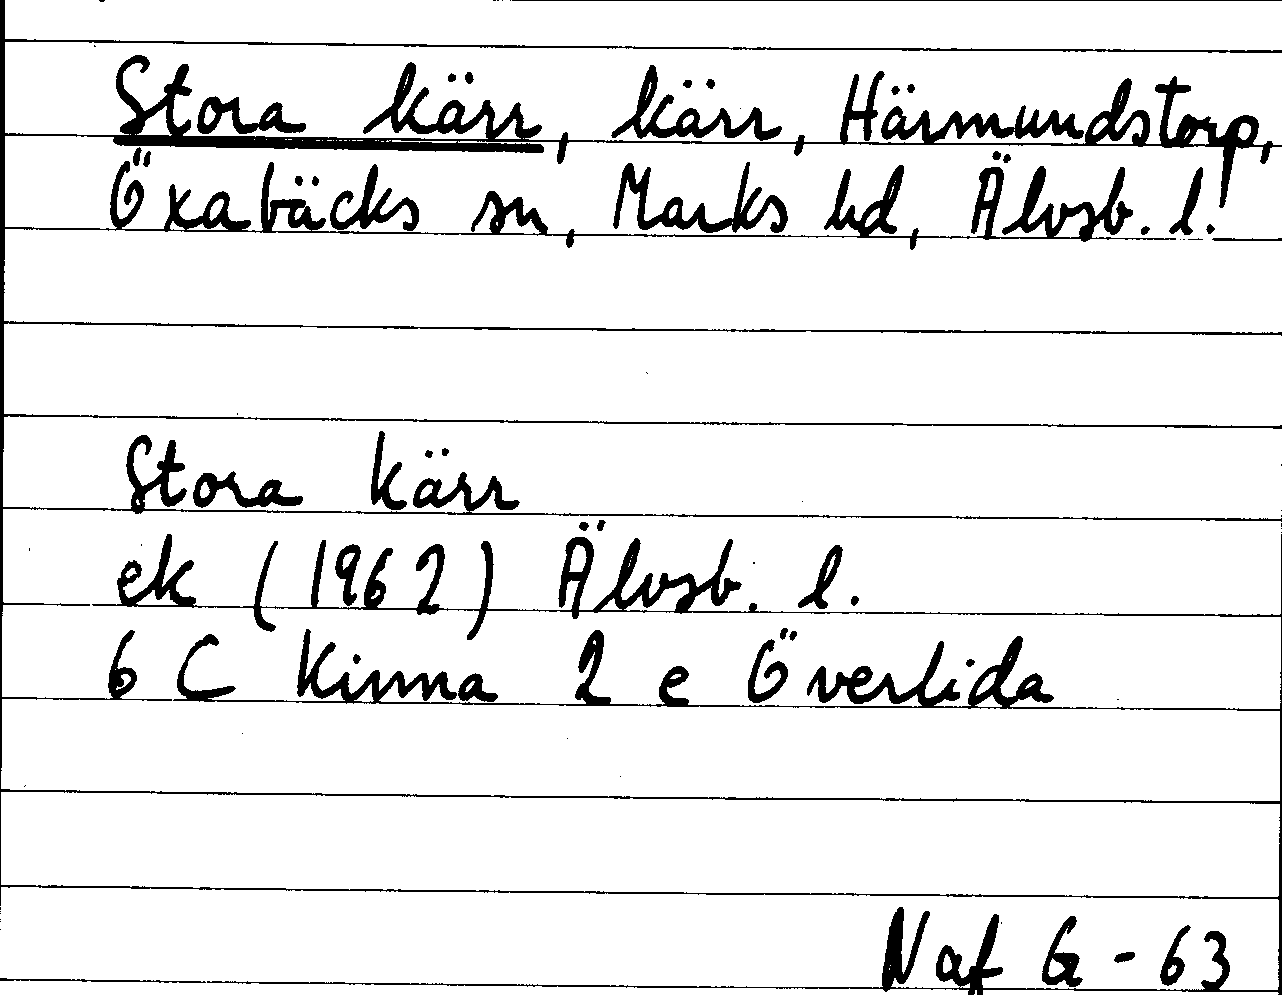 Stora kärr, kärr, Härmundstorp,
Öxabäcks sn, Marks hd, Älvsb. l.
Stora kärr
ek (1962) Älvsb. l.
6 C Kinna 2 e Överlida
Naf G - 63